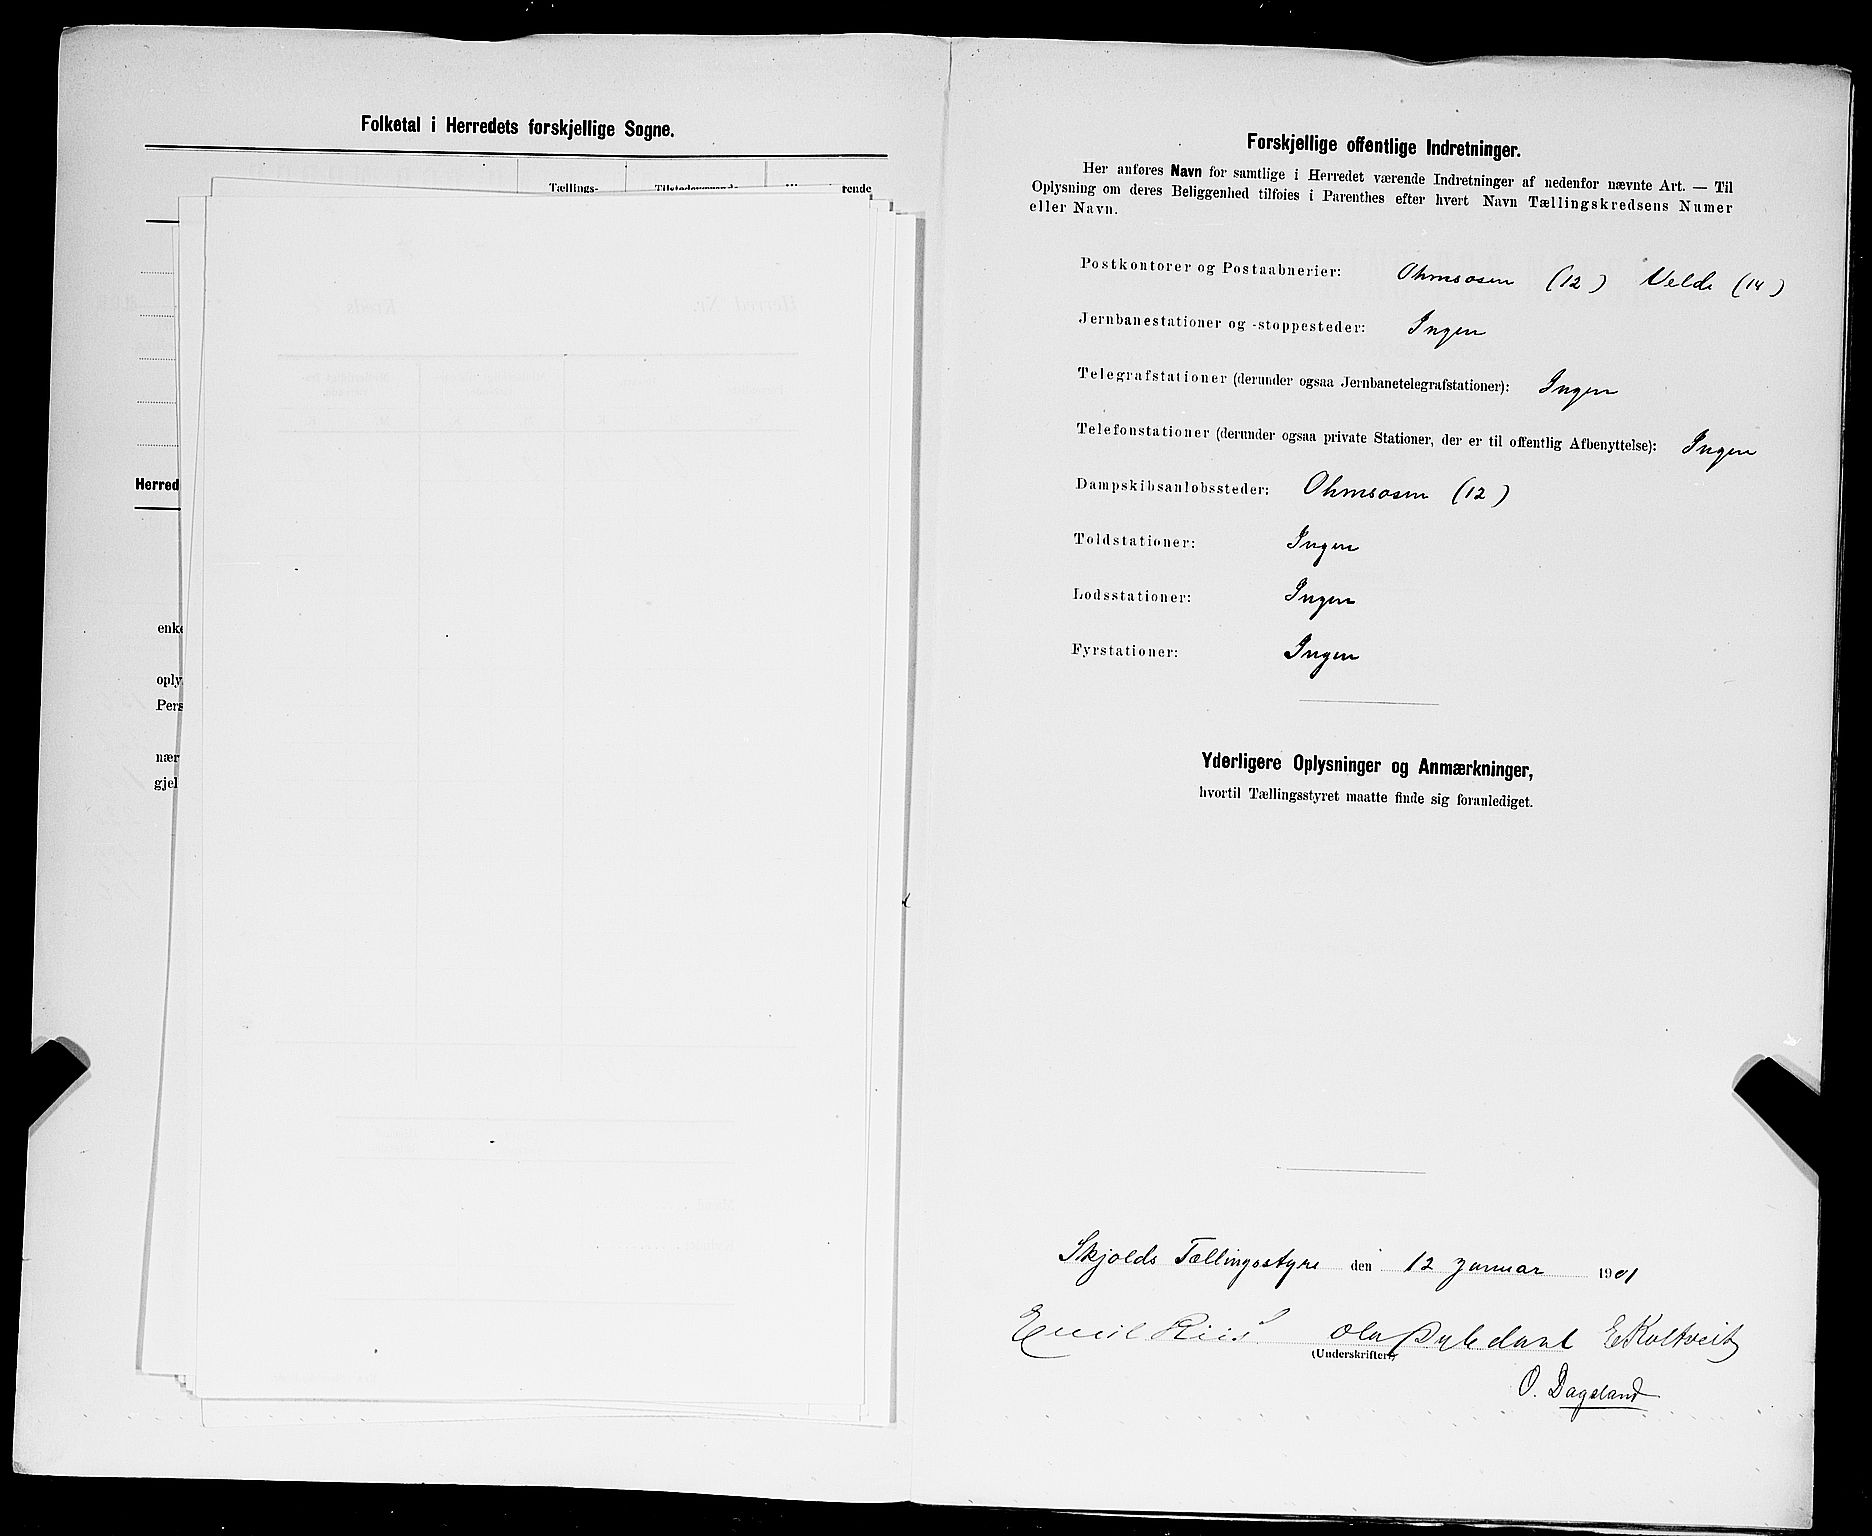 Folketal i Herredets forskjellige Sogne.
Tællings-
rende
Herred
enke
oply
Pers
nær
gjel
Forskjellige offentlige Indretninger.
Her anføres Navn for samtlige i Herredet værende Indretninger af nedenfor nævnte Art. — Til
Oplysning om deres Beliggenhed tilføies i Parenthes efter hvert Navn Tællingskredsens Numer
eller Navn.
Postkontorer og Postaabnerier: Ohmsosen (12) Velde (14)
Jernbanestationer og -stoppesteder: Ingen
Telegrafstationer (derunder ogsaa Jernbanetelegrafstationer): Ingen
Telefonstationer (derunder ogsaa private Stationer, der er til offentlig Afbenyttelse): Ingen
Dampskibsanløbssteder: Ohmsosen (12)
Toldstationer: Ingen
Lodsstationer: Ingen
Fyrstationer: Ingen
Yderligere Oplysninger og Anmærkninger,
hvortil Tællingsstyret maatte finde sig foranlediget.
Skjolds Tællingsstyre den 12 Januar 1901
Emil Riis Ola E Koltveit
(Underskrifter.)
O. Dagsland